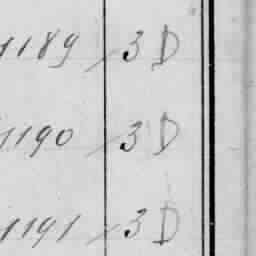 1189 3 D
1190 3 D
1191 3 D